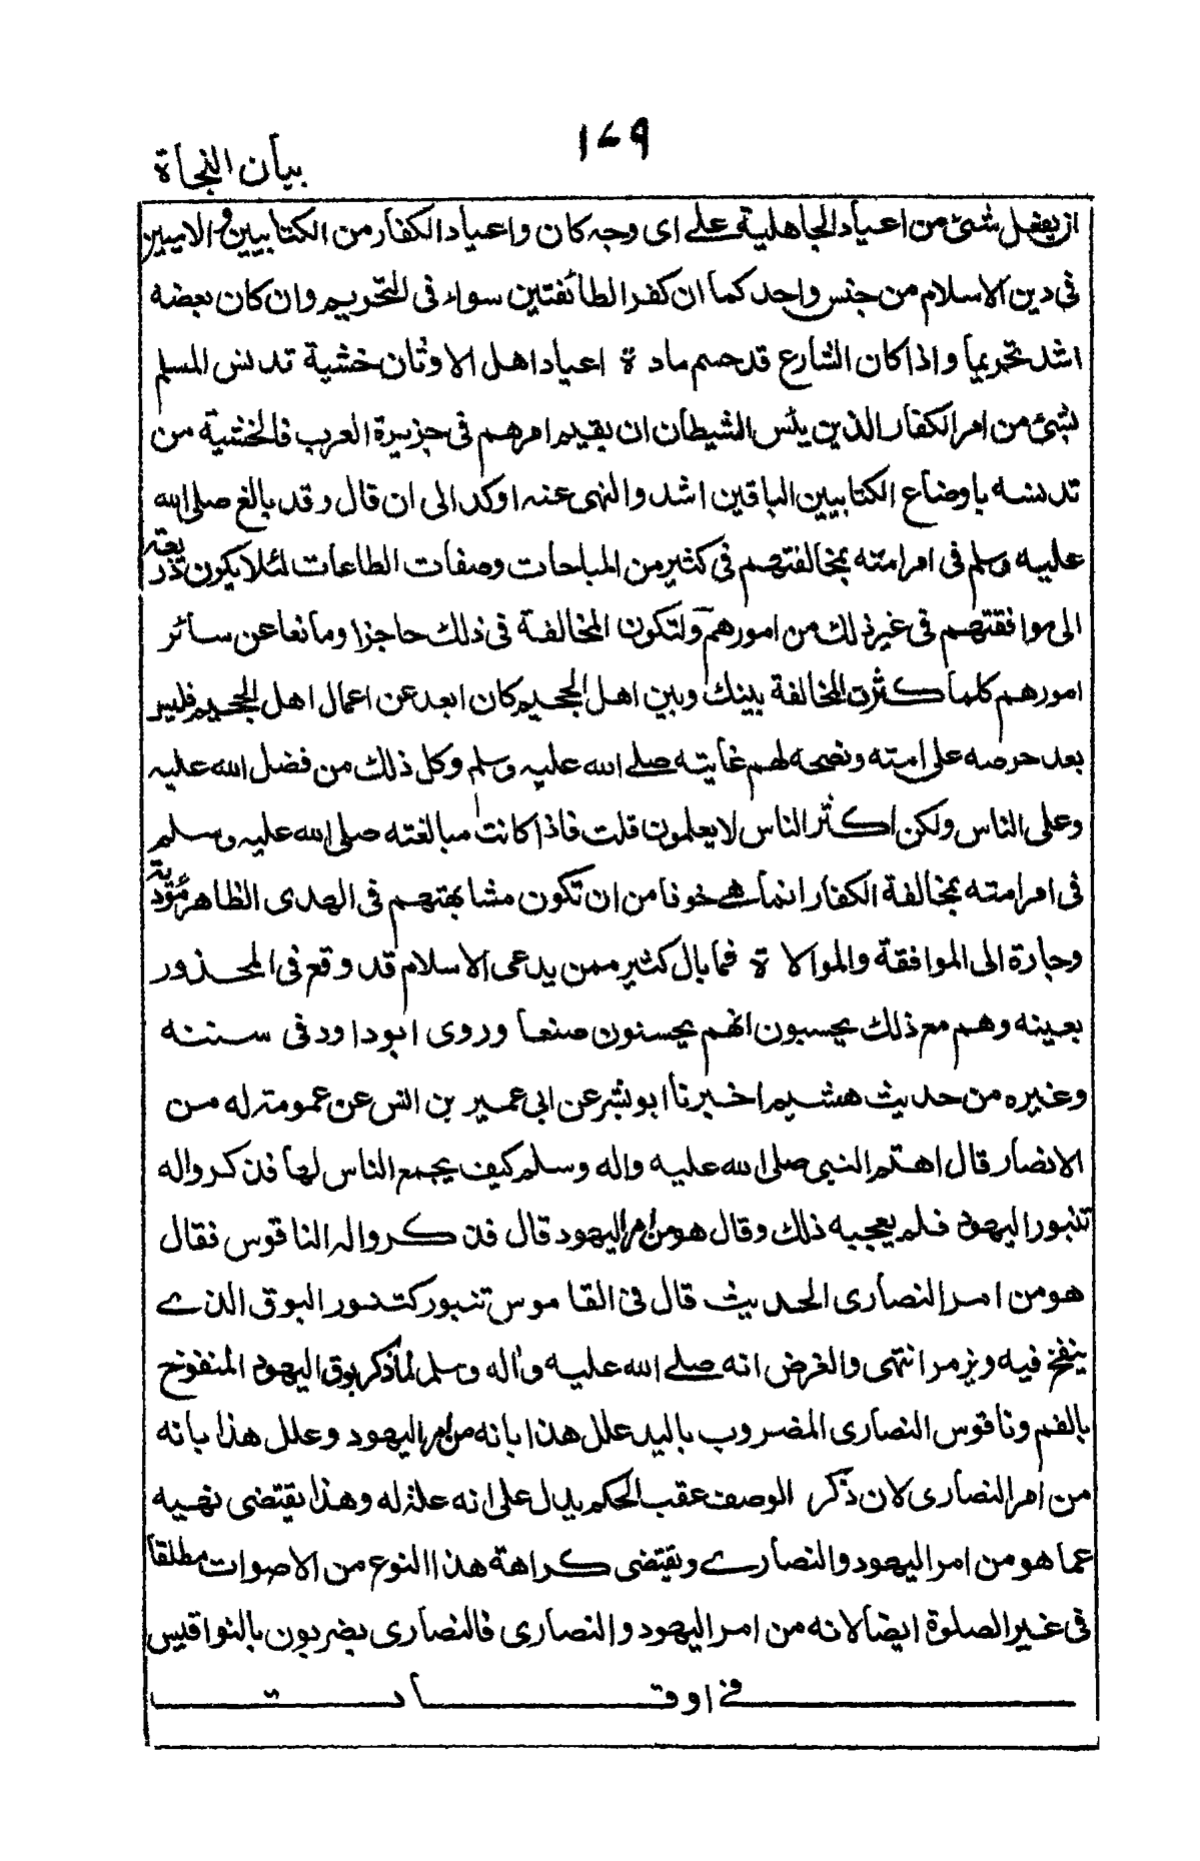 ١٦٩
بيان النجاة
ان يفعل شئ من اعياد الجاهلية علے اى وجه كان واعياد الكفار من الكتابيين والاميين
فى دين الاسلام من جنس واحد كما ان كفر الطائفتين سواء فى التحريم وان كان بعضه
اشد تحريما واذا كان الشارع قد حسم مادة اعياد اهل الاوثان خشية تدنس المسلم
بشئ من امر الكفار الذين يئس الشيطان ان يقيم امرهم فى جزيرة العرب فالخشية من
تدنسه باوضاع الكتابيين الباقين اشد والنهى عنه اوكد الى ان قال وقد بالغ صلى الله
عليه وسلم فى امر امته بمخالفتهم فى كثير من المباحات وصفات الطاعات لئلا يكون ذريعة
الى موافقتهم فى غير ذلك من امورهم ولتكون المخالفة فى ذلك حاجزا ومانعا عن سائر
امورهم كلما كثرت المخالفة بينك وبين اهل الجحيم كان ابعد عن اعمال اهل الجحيم فليس
بعد حرصه على امته ونصحه لهم غايته صلے الله عليه وسلم وكل ذلك من فضل الله عليه
وعلى الناس ولكن اكثر الناس لا يعلمون قلت فاذا كانت مبالغته صلى الله عليه وسلم
فى امر امته بمخالفة الكفار انما هے خوفا من ان تكون مشابهتهم فى الهدى الظاهر مؤدية
وجارة الى الموافقة والموالاة فما بال كثير ممن يدعى الاسلام قد وقع فى المحذور
بعينه وهم مع ذلك يحسبون انهم يحسنون صنعا وروى ابو داود فى سننه
وغيره من حديث هشيم اخبرنا ابو بشر عن ابى عمير بن انس عن عمومة له من
الانصار قال اهتم النبى صلى الله عليه واله وسلم كيف يجمع الناس لها فذكر واله
تنبور اليهود فلم يعجبه ذلك وقال هو من امر اليهود قال فذكروا له الناقوس فقال
هو من امر النصارى الحديث قال فى القاموس تنبور كتنور البوق الذے
ينفخ فيه ويزمر انتهى والغرض انه صلے الله عليه واله وسلم لما ذكر بوق اليهود المنفوخ
بالفم وناقوس النصارى المضروب باليد علل هذا بانه من امر اليهود وعلل هذا بانه
من امر النصارى لان ذكر الوصف عقب الحكم يدل على انه علة له وهذا يقتضى نهيه
عما هو من امر اليهود والنصارے ويقتضى كراهة هذا النوع من الاصوات مطلقا
فى غير الصلوة ايضا لانه من امر اليهود والنصارى فالنصارى يضربون بالنواقيس
فى اوقات